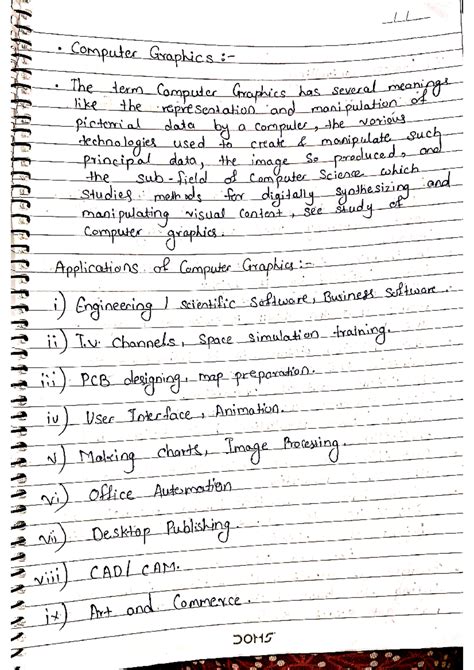 11
• Computer Graphics :-
• The term Computer Graphics has several meanings
like the representation and manipulation of
pictorial data by a computer, the various
technologies used to create & manipulate such
principal data, the image so produced, and
the sub-field of Computer Science which
studies methods for digitally synthesizing and
manipulating visual content, see study of
Computer graphics.
Applications of Computer Graphics:-
i) Engineering / scientific Software, Business software.
ii) T.V. Channels, Space simulation training.
iii) PCB designing, map preparation.
iv) User Interface, Animation.
v) Making charts, Image Processing.
vi) Office Automation
vii) Desktop Publishing.
viii) CAD/CAM.
ix) Art and Commerce.
DOMS